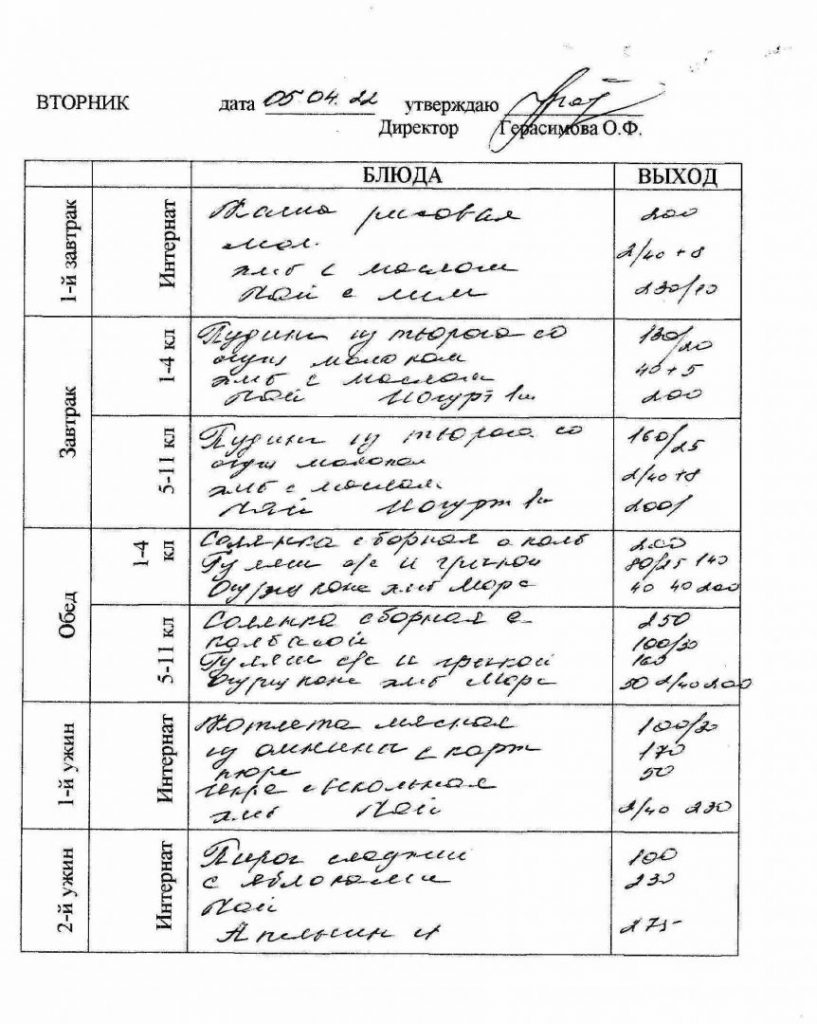 ВТОРНИК дата 05.04.22 утверждаю
Директор Герасимова О.Ф.
БЛЮДА ВЫХОД
1-й завтрак Интернат
Каша рисовая 200
мол.
хлеб с маслом 2/40 + 8
Чай с лим 230/10
Завтрак
1-4 кл
Пудинг из творога со 130/20
сгущ молоком
хлеб с маслом 40 + 5
Чай Йогурт 1ш 200
5-11 кл
Пудинг из творога со 160/25
сгущ молоком
хлеб с маслом 2/40 +8
Чай Йогурт 1ш 200/
Обед
1-4 кл
Солянка сборная с колб 200
Гуляш с/с и гречкой 80/25 140
Огурцы конс хлеб Морс 40 40 200
5-11 кл
Солянка сборная с 250
колбасой 100/30
Гуляш с/с и гречкой
Огурцы конс хлеб Морс 50 2/40 200
1-й ужин Интернат
Котлета мясная 100/30
из с карт 170
пюре 50
Икра свекольная
хлеб Чай 2/40 230
2-й ужин Интернат
Пирог сладкий 100
с яблоками 230
Чай
Апельсин 275-